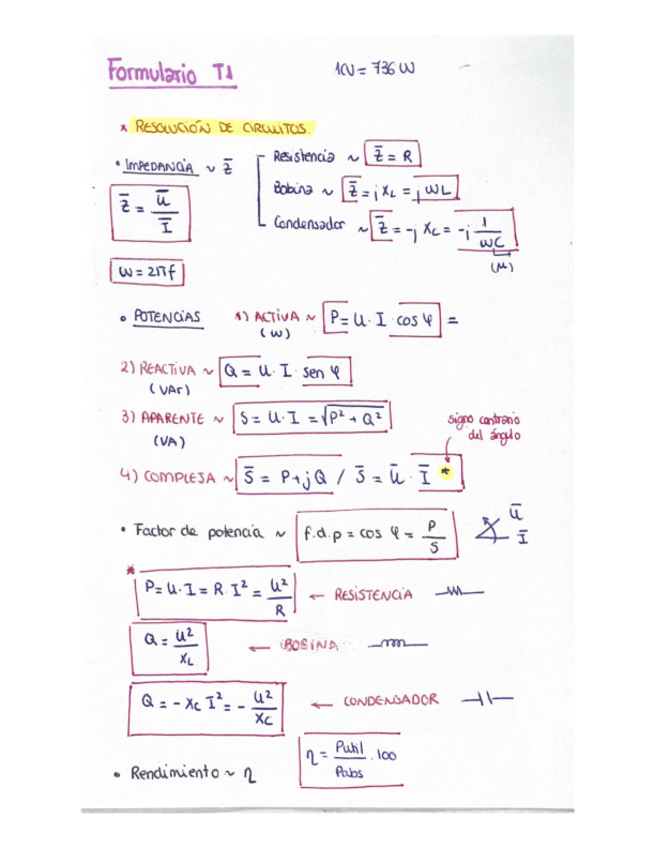 Formulario T1
1CV = 736 W
* RESOLUCIÓN DE CIRCUITOS.
• IMPEDANCIA ~ Z̅
Z̅ = U̅ / I̅
Resistencia ~ Z̅ = R
Bobina ~ Z̅ = j XL = j WL
Condensador ~ Z̅ = -j Xc = -j 1 / WC
(μ)
W = 2πf
• POTENCIAS 1) ACTIVA ~ P = U · I · cos φ =
(W)
2) REACTIVA ~ Q = U · I · sen φ
(VAr)
3) APARENTE ~ S = U · I = √(P² + Q²)
(VA)
signo contrario
del ángulo
4) COMPLEJA ~ S̅ = P + jQ / S̅ = U̅ · I̅ *
• Factor de potencia ~ f.d.p = cos φ = P / S
U̅
I̅
* P = U · I = R · I² = U² / R ← RESISTENCIA
Q = U² / XL ← BOBINA
Q = - Xc I² = - U² / Xc ← CONDENSADOR
• Rendimiento ~ η
η = Putil / Pabs · 100